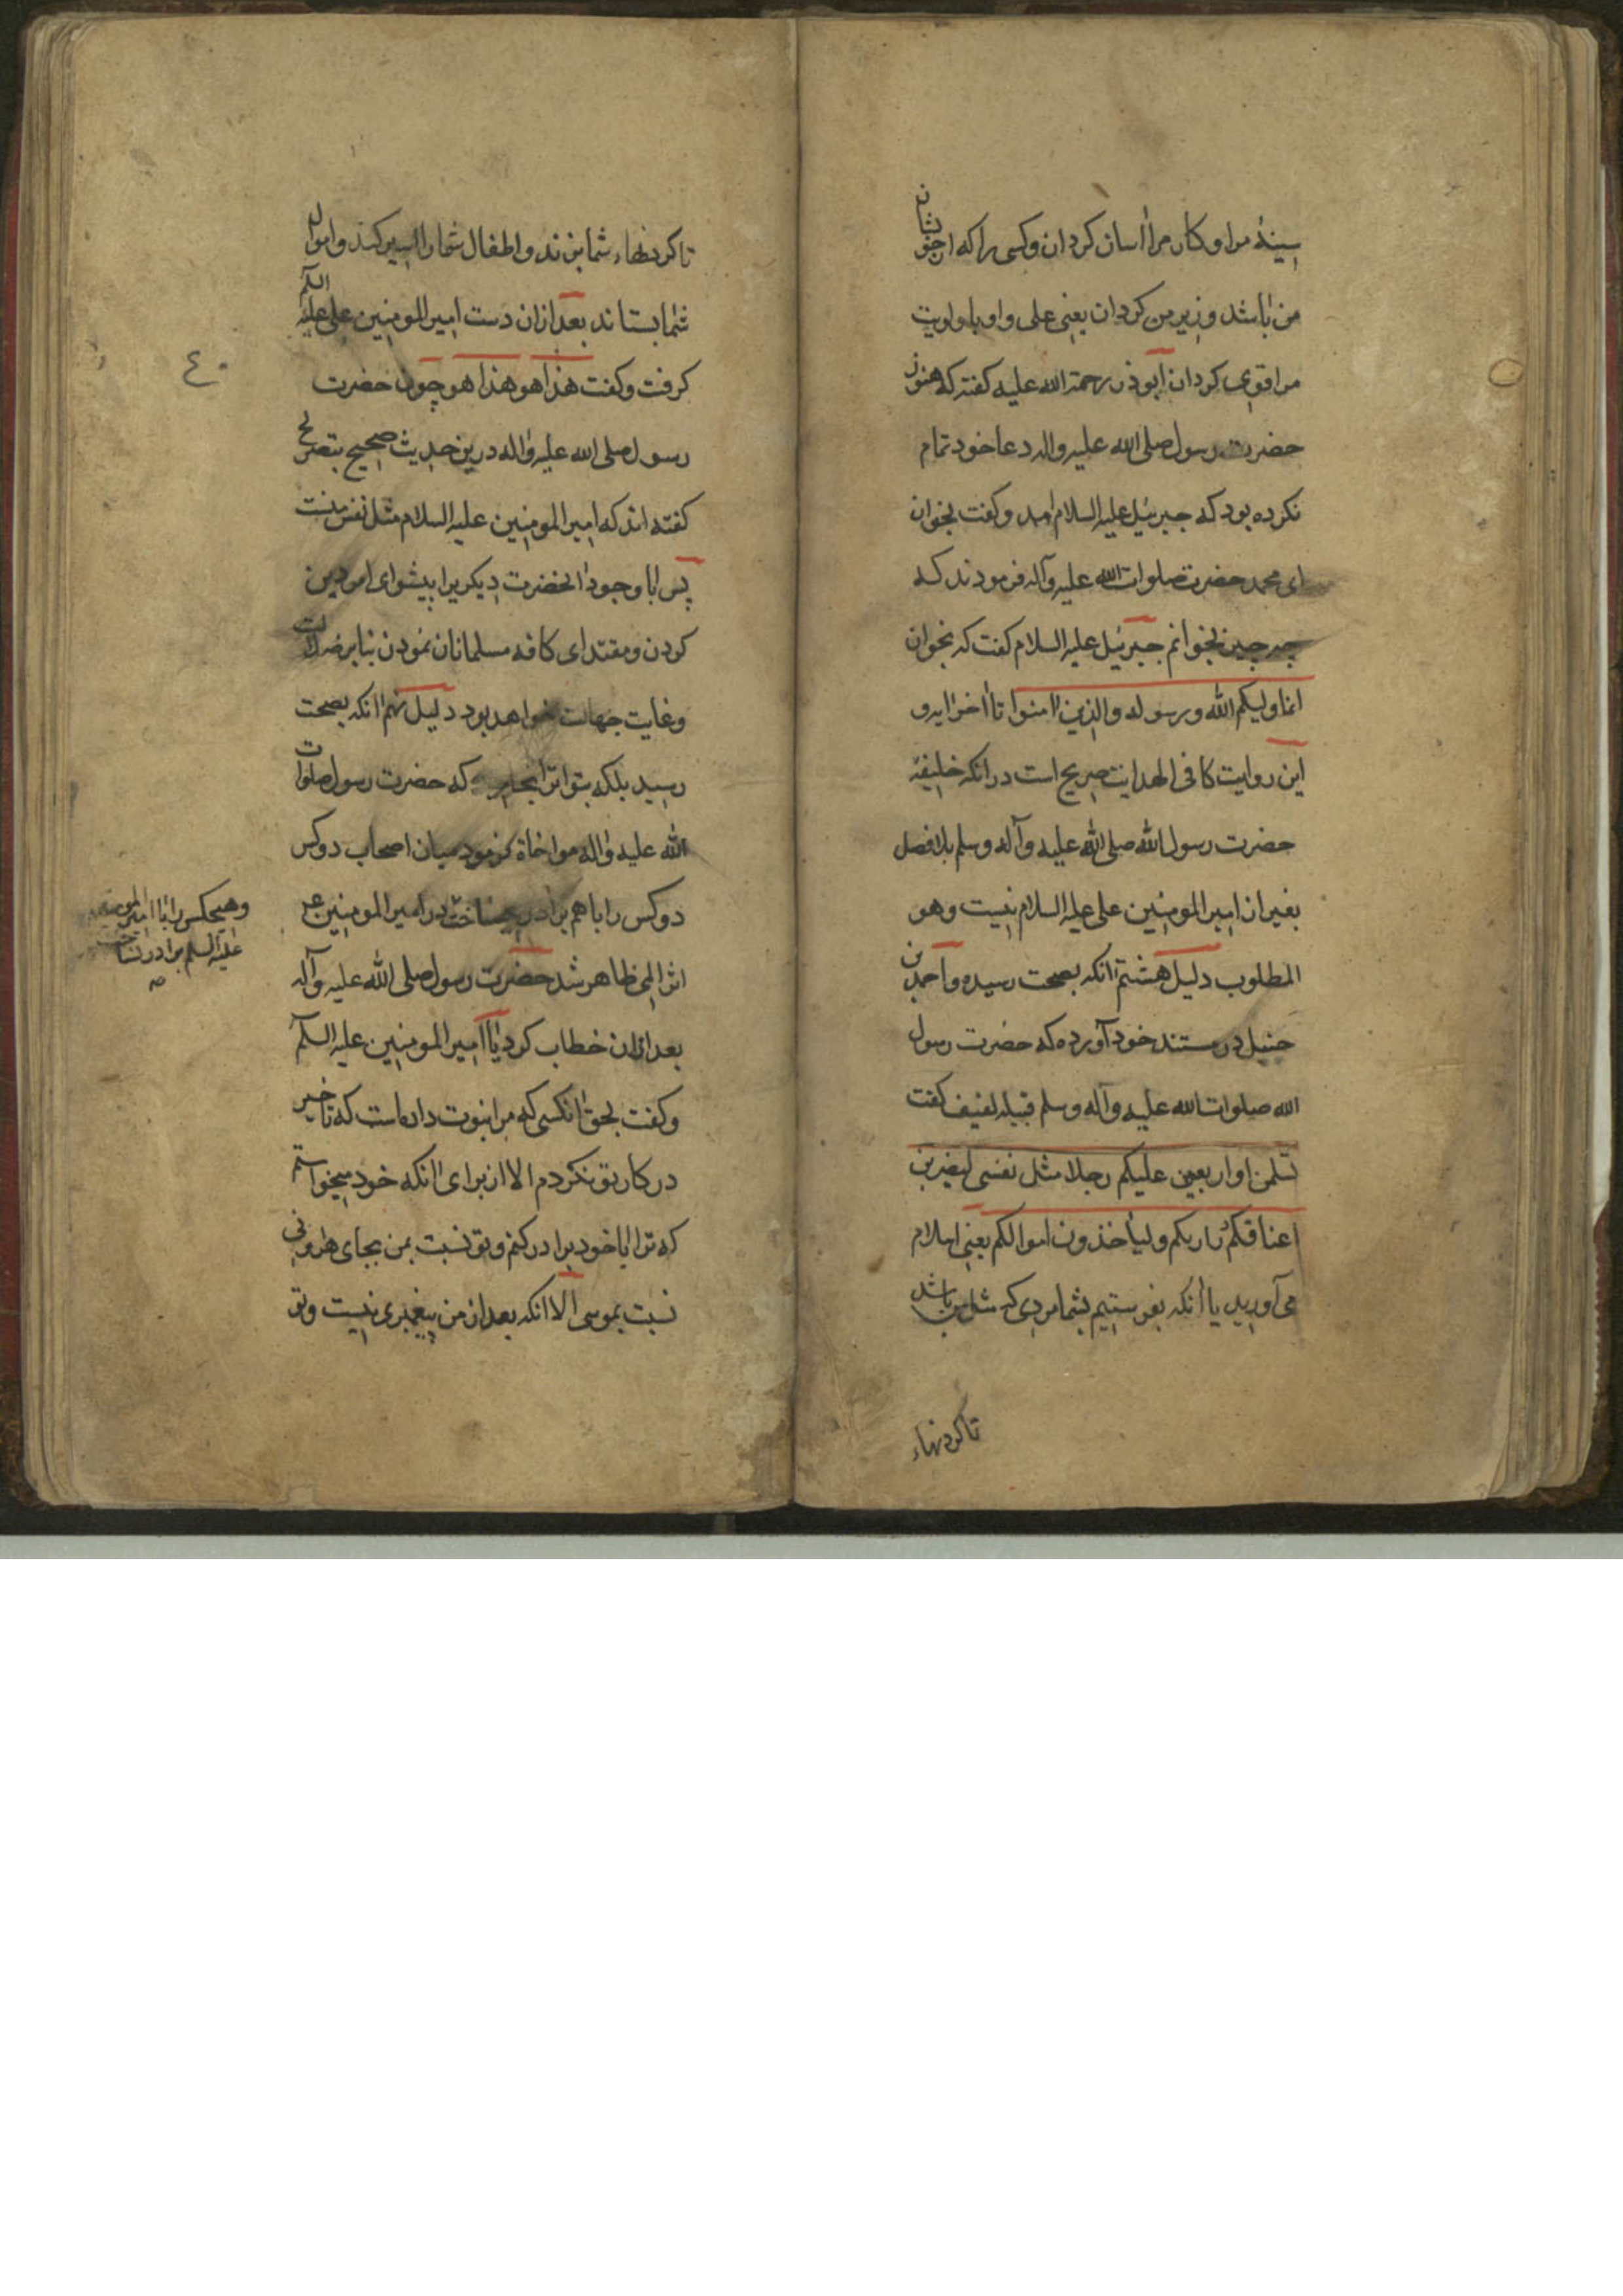 سینهٔ مرا و کار مرا آسان کردان و کسی را که از خویشان
من باشد وزیر من کردان یعنی علی و او با ولویت
مرا قوی کردان ابوذر رحمة الله علیه کفته که هنوز
حضرت رسول صلی الله علیه واله دعا خود تمام
نکرده بود که جبرئیل علیه السلام امد و کفت بخوان
ای محمد حضرت صلوات الله علیه وآله فرمودند که
چه چیز بخوانم جبرئیل علیه السلام کفت که بخوان
انما ولیکم الله ورسوله والذین امنوا تا آخر ایه و
این روایت کافی الهدایت صریح است در آنکه خلیفهٔ
حضرت رسول الله صلی الله علیه وآله وسلم بلا فصل
بغیر از امیر المومنین علی علیه السلام نیست وهو
المطلوب دلیل هشتم آنکه بصحت رسیده و احمد بن
حنبل در مسند خود آورده که حضرت رسول
الله صلوات الله علیه وآله وسلم قبیله کفت
تسلمن او اربعین علیکم رجلا مثل نفسی لیضربن
اعناقکم وليأخذون اموالکم یعنی اسلام
می آورید یا آنکه بفرستیم بشما مردی که مثل من باشد
تا کردنهاء
تا کردنهاء شما بزند و اطفال شما را اسیر کند و اموال
شما بستاند بعد ازان دست امیر المومنین علی علیه السلم
کرفت و کفت هذا هو هذا هو چون حضرت
رسول صلی الله علیه واله درین حدیث صحیح بتصریح
کفته اند که امیر المومنین علیه السلام مثل نفس منست
پس با وجود آنحضرت دیکریرا پیشوای امور دین
کردن و مقتدای کافه مسلمانان نمودن بنابر ضلالت
و غایت جهالت خواهد بود دلیل نهم آنکه بصحت
رسید بلکه بتواتر انجامید که حضرت رسول صلوات
الله علیه واله مواخاة فرمود میان اصحاب دوکس
دوکس را باهم برادر میساخت در امیر المومنین ع
اثر المی ظاهر شد حضرت رسول صلی الله علیه وآله
بعد ازان خطاب کرد با امیر المومنین علیه السلم
و کفت بحق آنکسی که مرا نبوت داده است که تاخیر
در کار تو نکردم الا از برای آنکه خود میخواستم
که ترا با خود برادر کنم و تو نسبت بمن بجای هارونی
نسبت بموسی الا آنکه بعد از من پیغمبری نیست و تو
٤٠
وهیچکس را با امیر المومنین
علیه السلم برادر نساخت
صح